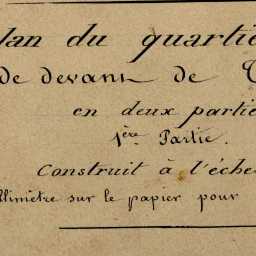 plan du quartie
de devant de
en deux partie
1ère Partie.
Construit à l'éche
llimètre sur le papier pour